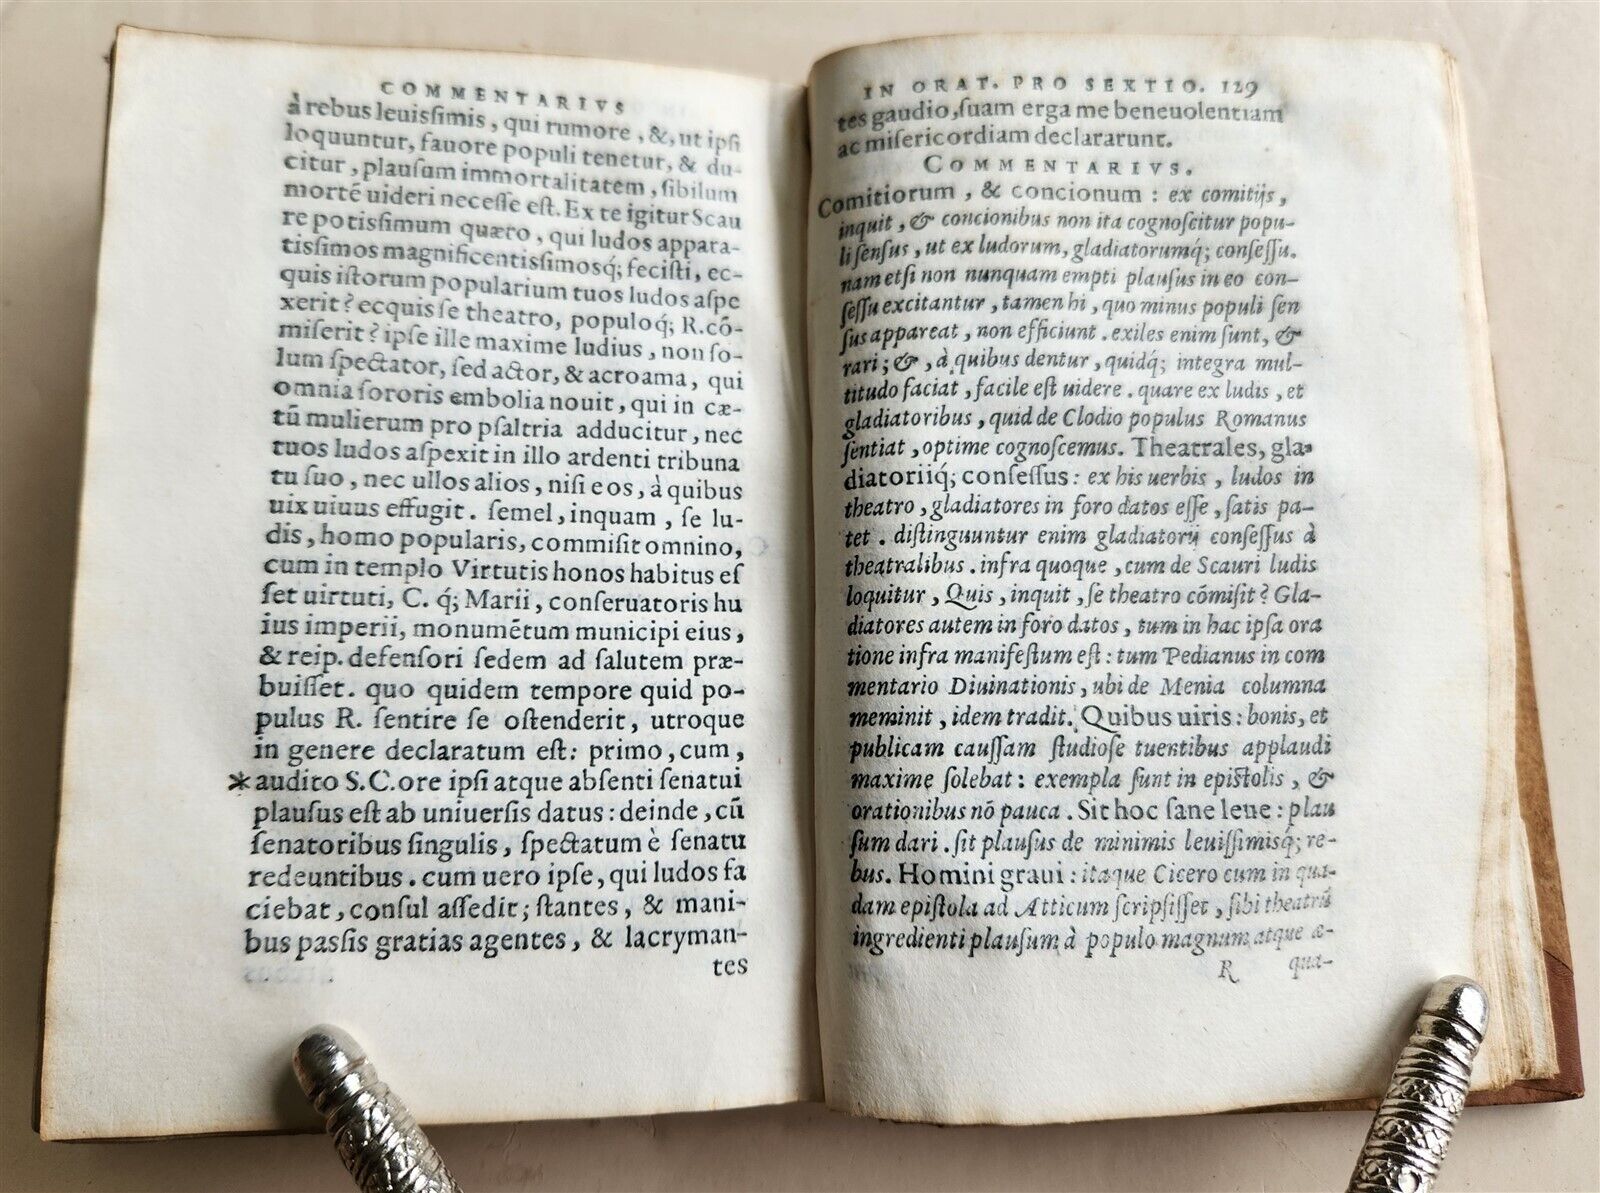 COMMENTARIVS
à rebus leuissimis, qui rumore, &, ut ipsi
loquuntur, fauore populi tenetur, & du-
citur, plausum immortalitatem, sibilum
mortē uideri necesse est. Ex te igitur Scau
re potissimum quæro, qui ludos appara-
tissimos magnificentissimosq́; fecisti, ec-
quis istorum popularium tuos ludos aspe
xerit? ecquis se theatro, populoq́; R. cō-
miserit? ipse ille maxime ludius, non so-
lum spectator, sed actor, & acroama, qui
omnia sororis embolia nouit, qui in cæ-
tū mulierum pro psaltria adducitur, nec
tuos ludos aspexit in illo ardenti tribuna
tu suo, nec ullos alios, nisi eos, à quibus
uix uiuus effugit. semel, inquam, se lu-
dis, homo popularis, commisit omnino,
cum in templo Virtutis honos habitus es
set uirtuti, C. q́; Marii, conseruatoris hu
ius imperii, monumētum municipi eius,
& reip. defensori sedem ad salutem præ-
buisset. quo quidem tempore quid po-
pulus R. sentire se ostenderit, utroque
in genere declaratum est: primo, cum,
*audito S.C. ore ipsi atque absenti senatui
plausus est ab uniuersis datus: deinde, cū
senatoribus singulis, spectatum è senatu
redeuntibus. cum uero ipse, qui ludos fa
ciebat, consul assedit; stantes, & mani-
bus passis gratias agentes, & lacryman-
tes
IN ORAT. PRO SEXTIO. 129
tes gaudio, suam erga me beneuolentiam
ac misericordiam declararunt.
COMMENTARIVS.
Comitiorum, & concionum: ex comitijs,
inquit, & concionibus non ita cognoscitur popu-
li sensus, ut ex ludorum, gladiatorumq́; consessu.
nam etsi non nunquam empti plausus in eo con-
sessu excitantur, tamen hi, quo minus populi sen
sus appareat, non efficiunt. exiles enim sunt, &
rari; &, à quibus dentur, quidq́; integra mul-
titudo faciat, facile est uidere. quare ex ludis, et
gladiatoribus, quid de Clodio populus Romanus
sentiat, optime cognoscemus. Theatrales, gla-
diatoriiq́; consessus: ex his uerbis, ludos in
theatro, gladiatores in foro datos esse, satis pa-
tet. distinguuntur enim gladiatorij consessus à
theatralibus. infra quoque, cum de Scauri ludis
loquitur, Quis, inquit, se theatro cōmisit? Gla-
diatores autem in foro datos, tum in hac ipsa ora
tione infra manifestum est: tum Pedianus in com
mentario Diuinationis, ubi de Menia columna
meminit, idem tradit. Quibus uiris: bonis, et
publicam caussam studiose tuentibus applaudi
maxime solebat: exempla sunt in epistolis, &
orationibus nō pauca. Sit hoc sane leue: plau
sum dari. sit plausus de minimis leuissimisq́; re-
bus. Homini graui: itaque Cicero cum in qua-
dam epistola ad Atticum scripsisset, sibi theatrū
ingredienti plausum à populo magnum atque æ-
R qua-